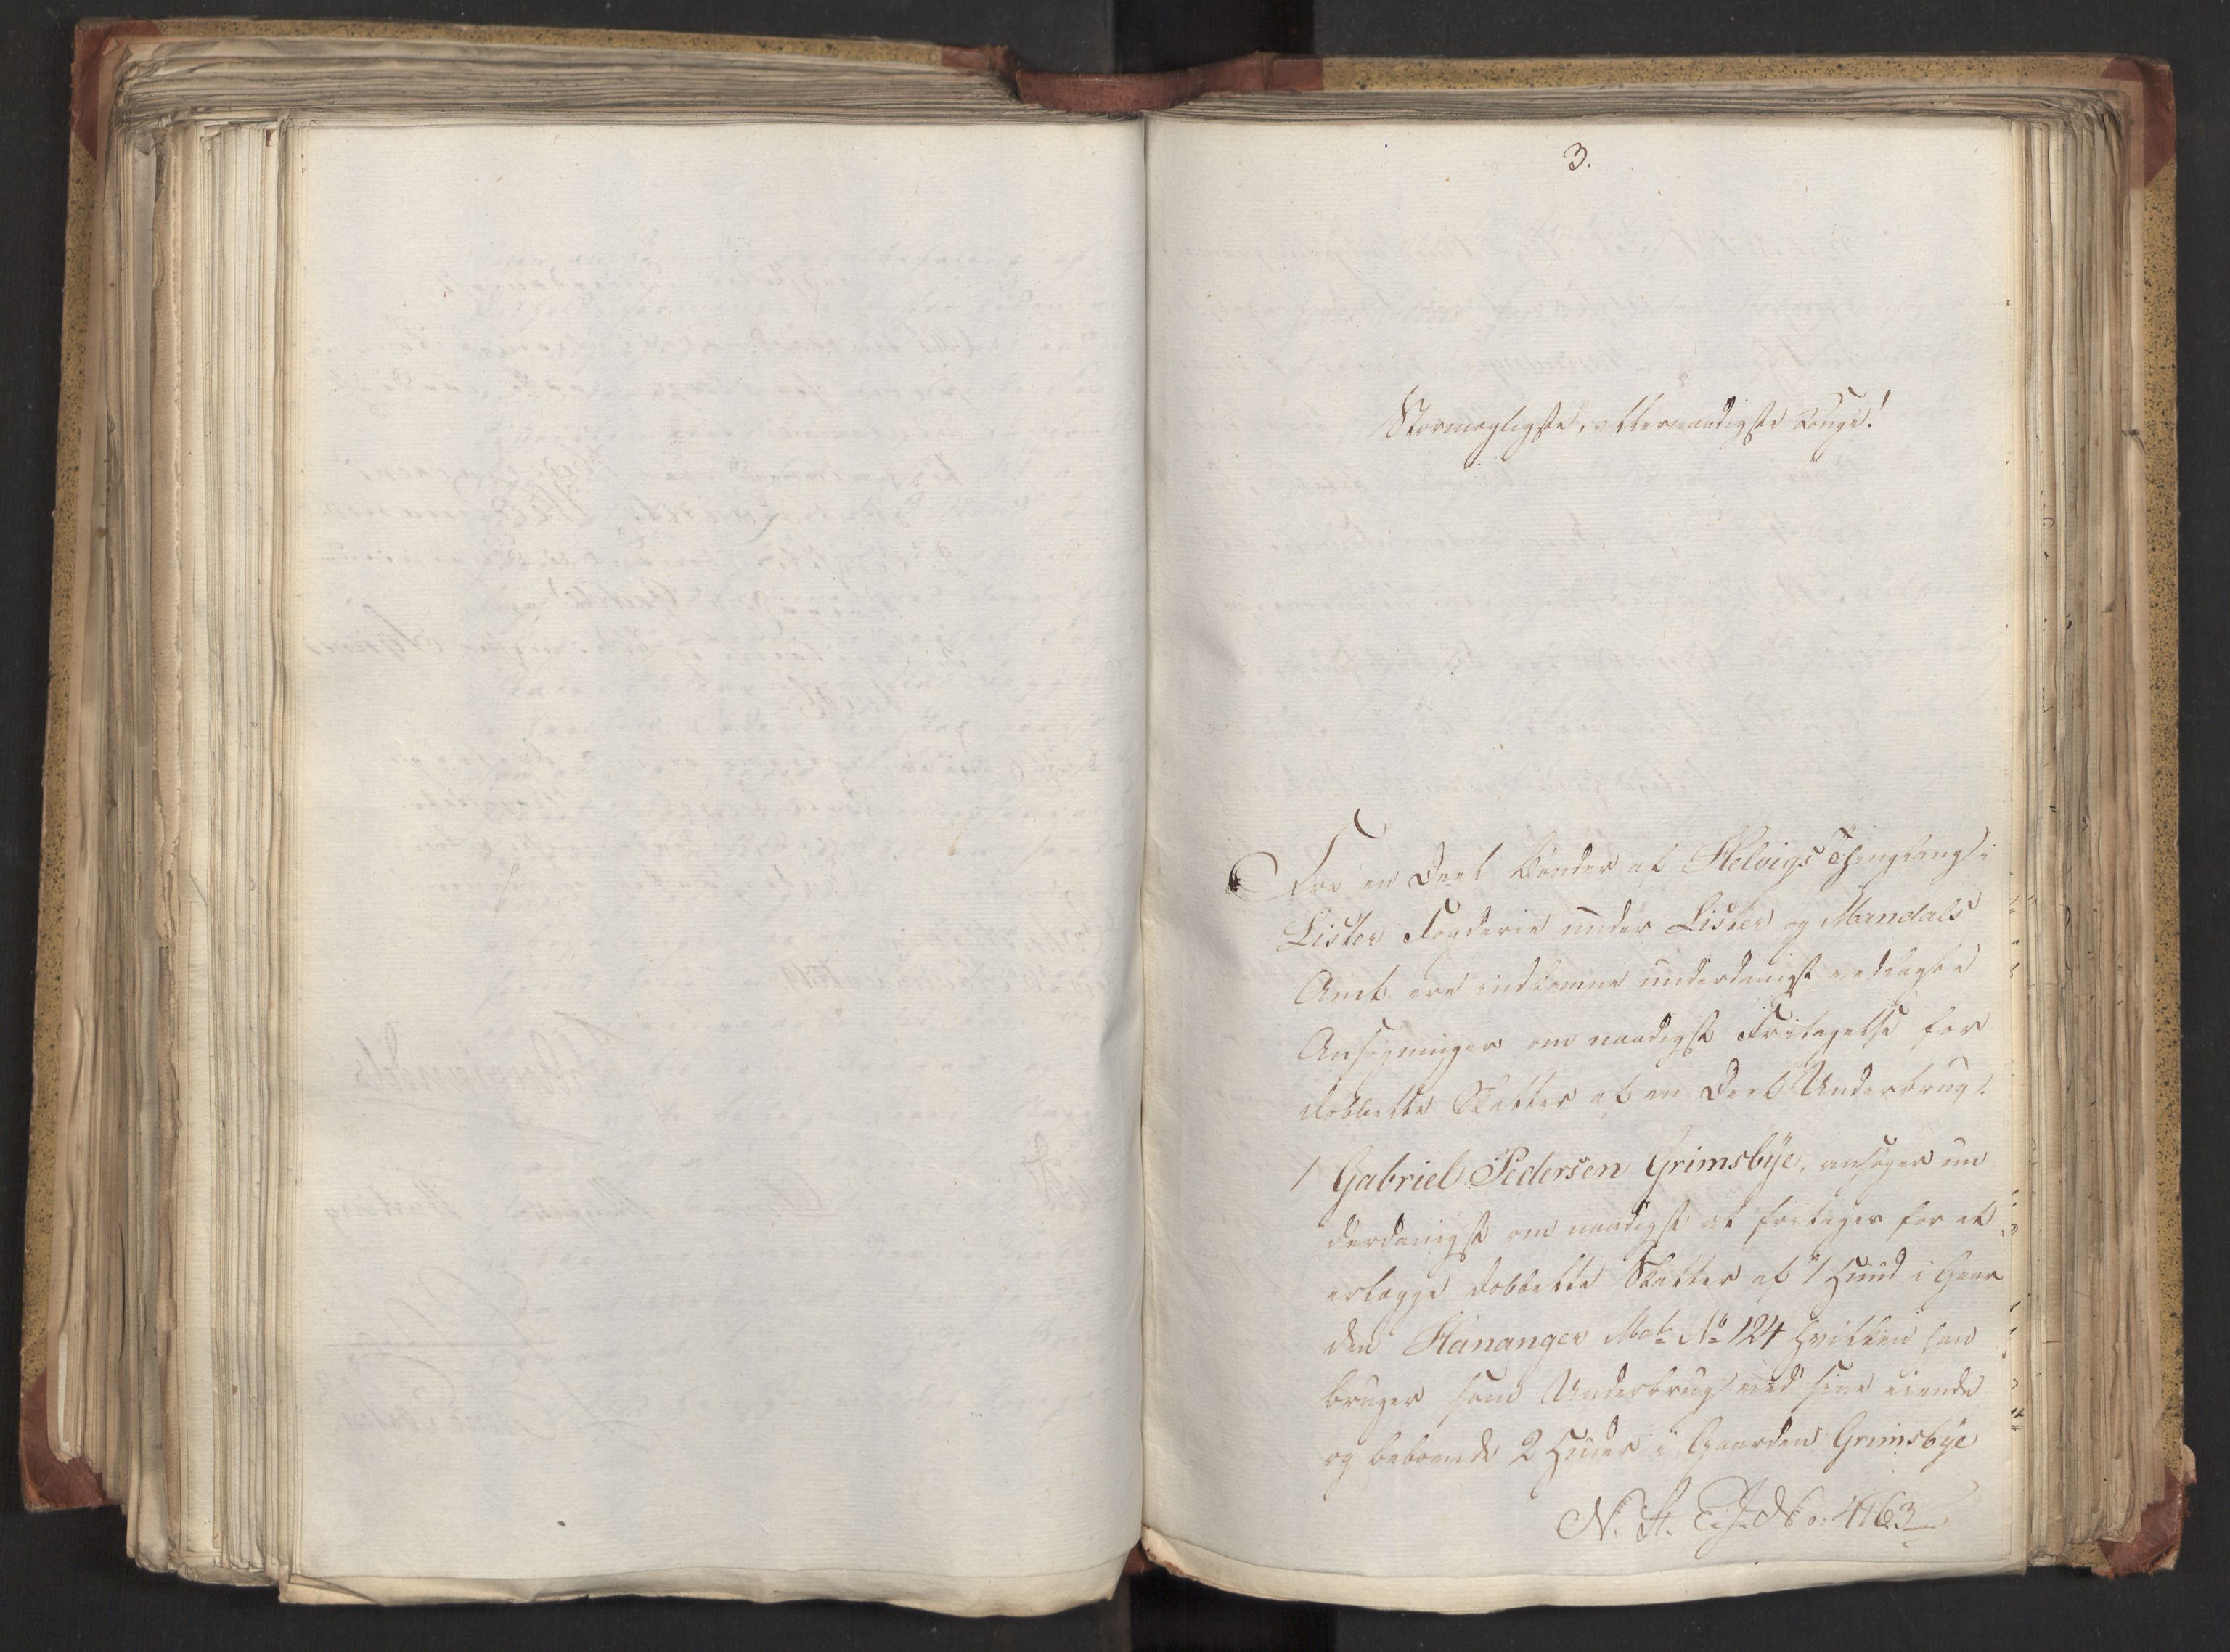 3.
Stormægtigste, allernaadigste Konge!
Fra en Deel Bønder af Helvigs Thinglaug i
Lister Fogderie under Lister og Mandals
Amt ere indkomne underdanigst vedlagte
Ansøgninger om naadigst Fritagelse for
dobbelte Skatter af en Deel Underbrug.
1 Gabriel Pedersen Grimsbÿe, ansøger un
derdanigst om naadigst at fritages for at
erlægge dobbelte Skatter af 1 Huud i Gaar
den Hananger Mat. No 124 hvilken han
bruger som Underbrug med sine eiende
og beboende 2 Huder i Gaarden Grimsbÿe
N. A. E. J. No. 4763